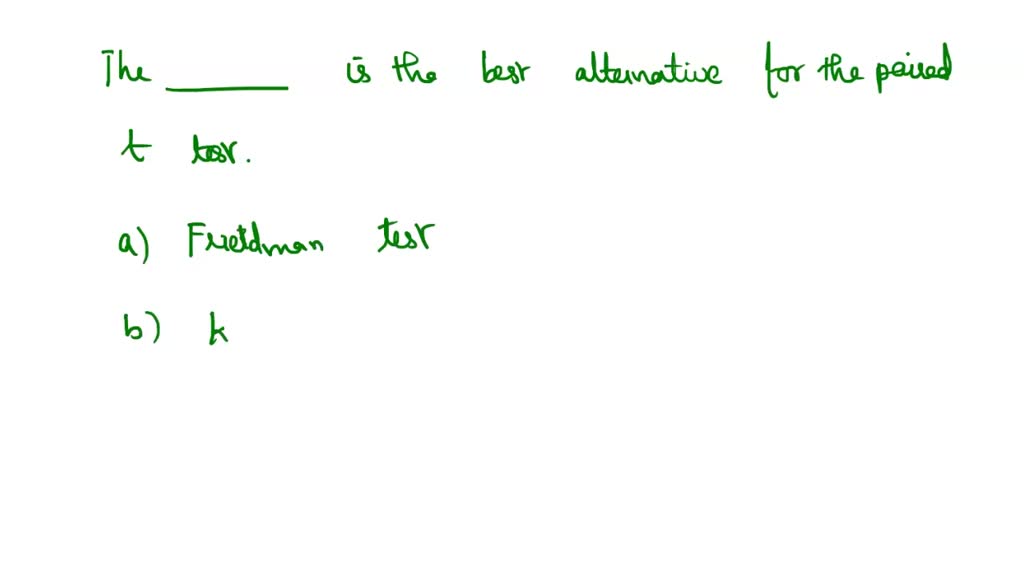 The ______ is the best alternative for the paired
t test.
a) Friedman test
b) k